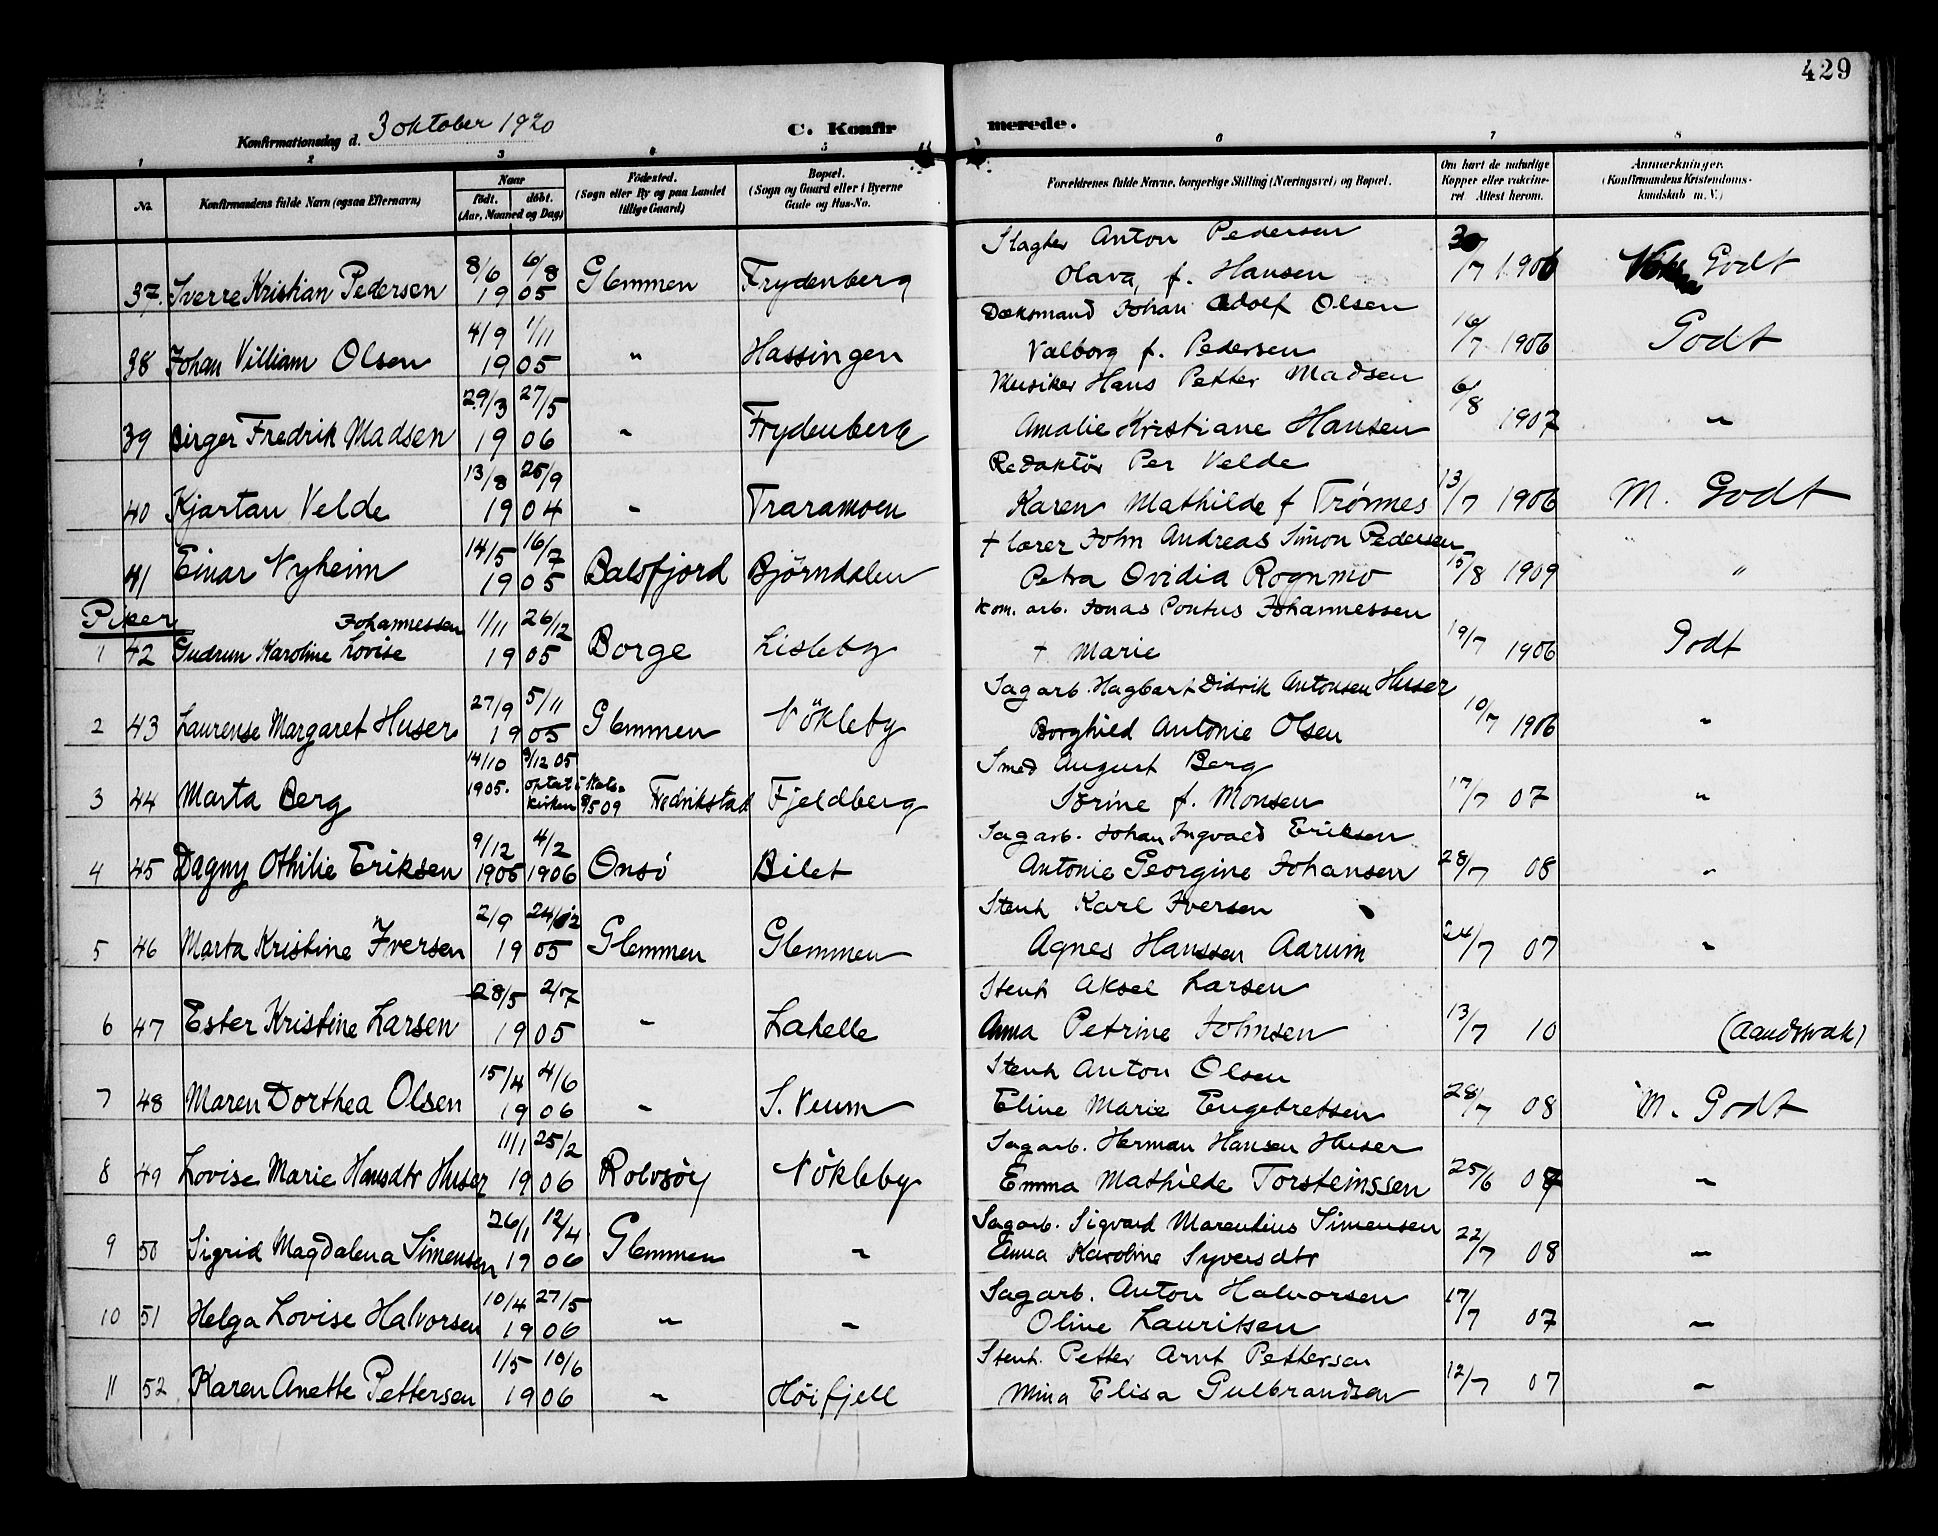 429
Konfirmationsdag d. 3 oktober 1920
C. Konfirmerede.
1 2 3 4 5 6 7 8
No.
Konfirmandens fulde Navn (ogsaa Efternavn)
Naar
født. døbt.
(Aar, Maaned og Dag)
Fødested.
(Sogn eller By og paa Landet
tillige Gaard)
Bopæl.
(Sogn og Gaard eller i Byerne
Gade og Hus-No.
Forældrenes fulde Navne, borgerlige Stilling (Næringsvei) og Bopæl.
Om havt de naturlige
Kopper eller vakcine-
ret Attest herom.
Anmærkninger.
(Konfirmandens Kristendoms-
kundskab m. V.)
Slagter Anton Pedersen
37. Sverre Kristian Pedersen 8/6 6/8 1905 Glemmen Frydenberg Olava, f. Hansen /7 1906 Godt
Dæksmand Johan Adolf Olsen
38 Johan Villiam Olsen 4/9 1/11 1905 " Hassingen Valborg f. Pedersen 16/7 1906 Godt
Musiker Hans Petter Madsen
39 Birger Fredrik Madsen 29/3 27/5 1906 " Frydenberg Amalie Kristiane Hansen 6/8 1907 "
Redaktør Per Velde
40 Kjartan Velde 13/8 25/9 1904 " Traramoen Karen Mathilde f Trønnes 13/7 1906 M. Godt
† lærer John Andreas Simon Pedersen
41 Einar Nyheim 14/5 16/7 1905 Balsfjord Bjørndalen Petra Ovidia Rognmo 15/8 1909 "
Piker
Kom. arb. Jonas Pontus Johannessen
Johannessen
1 42 Gudrun Karoline Lovise 1/11 26/12 1905 Borge Lisleby † Marie 19/7 1906 Godt
Sagarb. Hagbart Didrik Antonsen Huser
2 43 Laurense Margaret Huser 27/9 5/11 1905 Glemmen Nökleby Borghild Antonie Olsen 10/7 1906 "
Smed August Berg
3 44 Marta Berg 14/10 1905. 3/12 05 optat i Stats-kirken 9/5 09 Fredrikstad Fjeldberg Sørine f. Monsen 17/7 07 "
Sagarb. Johan Ingvald Eriksen
4 45 Dagny Othilie Eriksen 9/12 1905 4/2 1906 Onsö Bilet Antonie Georgine Johansen 28/7 08 "
Stenh Karl Iversen
5 46 Marta Kristine Iversen 2/9 24/12 1905 Glemmen Glemmen Agnes Hanssen Aarum 24/7 07 "
Stenh Aksel Larsen
6 47 Ester Kristine Larsen 28/5 2/7 1905 " Lahelle Anna Petrine Johnsen 13/7 10 (Aandsvak)
Stenh Anton Olsen
7 48 Maren Dorthea Olsen 15/4 4/6 1906 " S. Veum Eline Marie Engebretsen 28/7 08 M. Godt
Sagarb. Herman Hansen Huser
8 49 Lovise Marie Hansdtr Huser 11/1 25/2 1906 Rolvsöy Nökleby Emma Mathilde Torsteinssen 25/6 07 "
Sagarb. Sigvard Marentius Simensen
9 50 Sigrid Magdalena Simensen 26/1 12/4 1906 Glemmen " Anna Karoline Syversdtr 22/7 08 "
Sagarb. Anton Halvorsen
10 51 Helga Lovise Halvorsen 10/4 27/5 1906 " " Oline Lauritsen 17/7 07 "
Stenh. Petter Arnt Petterson
11 52 Karen Anette Pettersen 1/5 10/6 1906 " Höifjell Mina Elisa Gulbrandsen 12/7 07 "